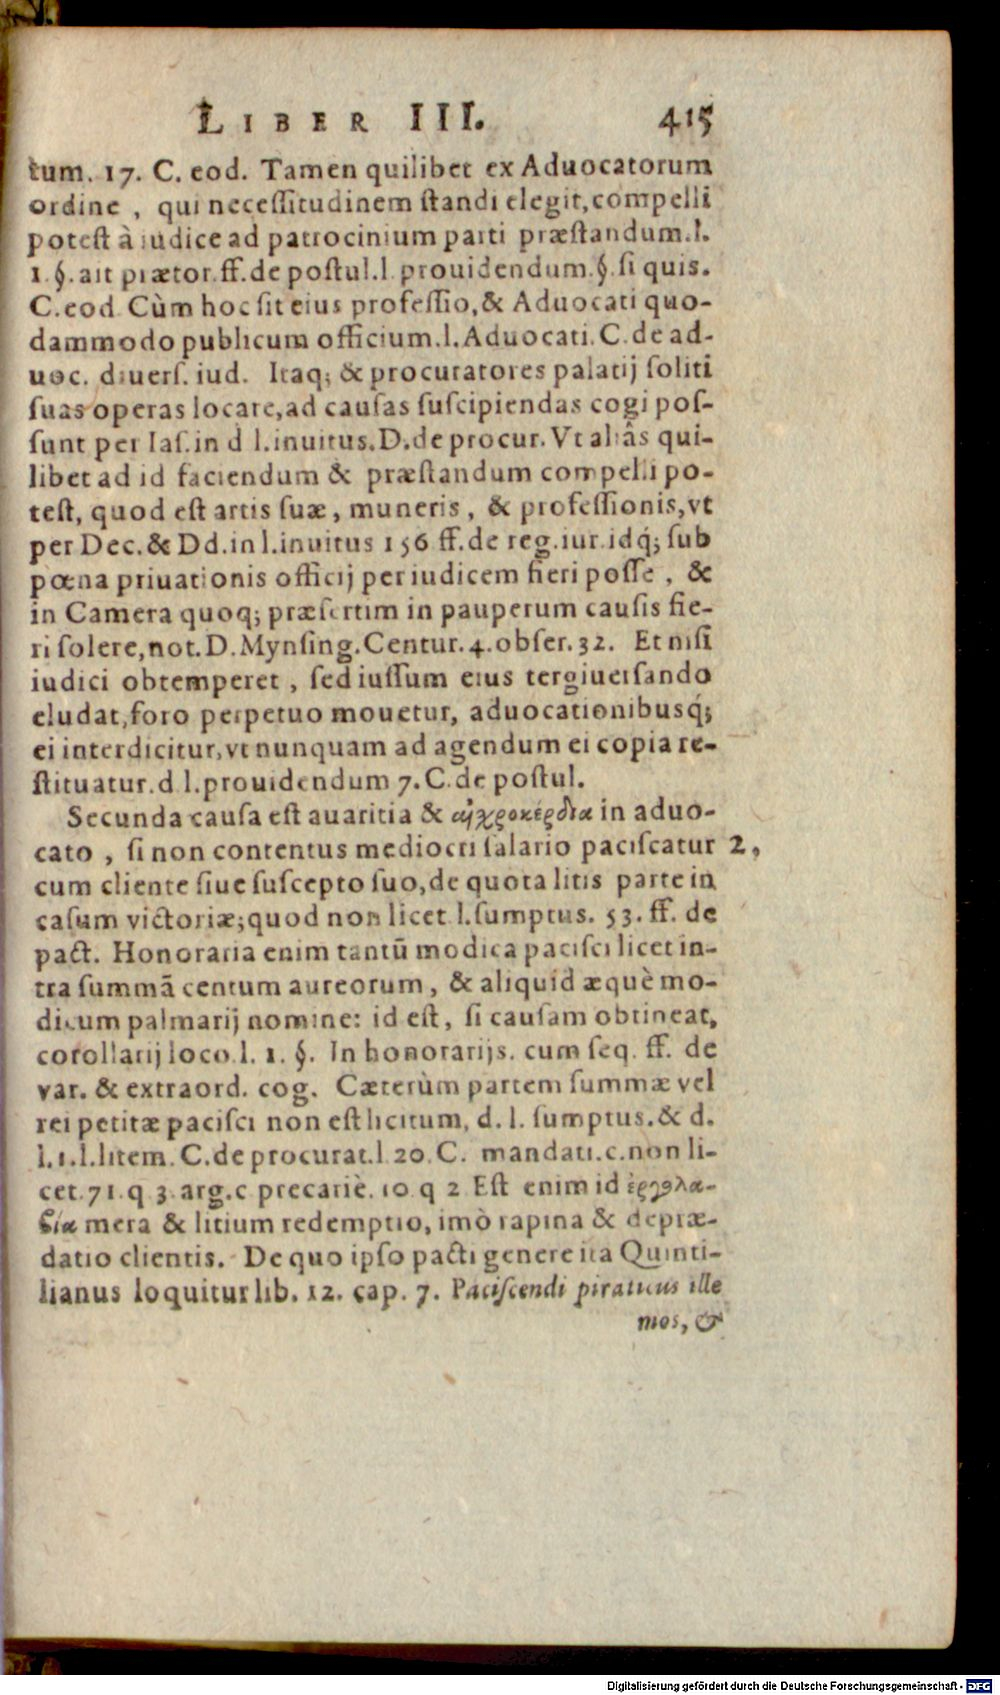 LIBER III. 415
tum. 17. C. eod. Tamen quilibet ex Aduocatorum
ordine, qui neceſſitudinem ſtandi elegit, compelli
poteſt à iudice ad patrocinium parti præſtandum. l.
1. §. ait prætor. ff. de poſtul. l. prouidendum. §. ſi quis.
C. eod. Cùm hoc ſit eius profeſſio, & Aduocati quo-
dammodo publicum officium. l. Aduocati. C. de ad-
uoc. diuerſ. iud. Itaq; & procuratores palatij ſoliti
ſuas operas locare, ad cauſas ſuſcipiendas cogi poſ-
ſunt per Iaſ. in d l. inuitus. D. de procur. Vt aliâs qui-
libet ad id faciendum & præſtandum compelli po-
teſt, quod eſt artis ſuæ, muneris, & profeſſionis, vt
per Dec. & Dd. in l. inuitus 156 ff. de reg. iur. idq́; ſub
pœna priuationis officij per iudicem fieri poſſe, &
in Camera quoq; præſertim in pauperum cauſis fie-
ri ſolere, not. D. Mynſing. Centur. 4. obſer. 32. Et niſi
iudici obtemperet, ſed iuſſum eius tergiuerſando
eludat, foro perpetuo mouetur, aduocationibusq́;
ei interdicitur, vt nunquam ad agendum ei copia re-
ſtituatur. d l. prouidendum 7. C. de poſtul.
Secunda cauſa eſt auaritia & αἰχροκέρδια in aduo-
cato, ſi non contentus mediocri ſalario paciſcatur 2.
cum cliente ſiue ſuſcepto ſuo, de quota litis parte in
caſum victoriæ; quod non licet l. ſumptus. 53. ff. de
pact. Honoraria enim tantū modica paciſci licet in-
tra ſummā centum aureorum, & aliquid æquè mo-
dicum palmarij nomine: id eſt, ſi cauſam obtineat,
corollarij loco. l. 1. §. In honorarijs. cum ſeq. ff. de
var. & extraord. cog. Cæterùm partem ſummæ vel
rei petitæ paciſci non eſt licitum, d. l. ſumptus. & d.
l. 1. l. litem. C. de procurat. l 20. C. mandati. c. non li-
cet. 71. q 3. arg. c precariè. 10 q 2 Eſt enim id ἐργολα-
βία mera & litium redemptio, imò rapina & depræ-
datio clientis. De quo ipſo pacti genere ita Quinti-
lianus loquitur lib. 12. cap. 7. Paciſcendi piraticus ille
mos, &
Digitalisierung gefördert durch die Deutsche Forschungsgemeinschaft - DFG